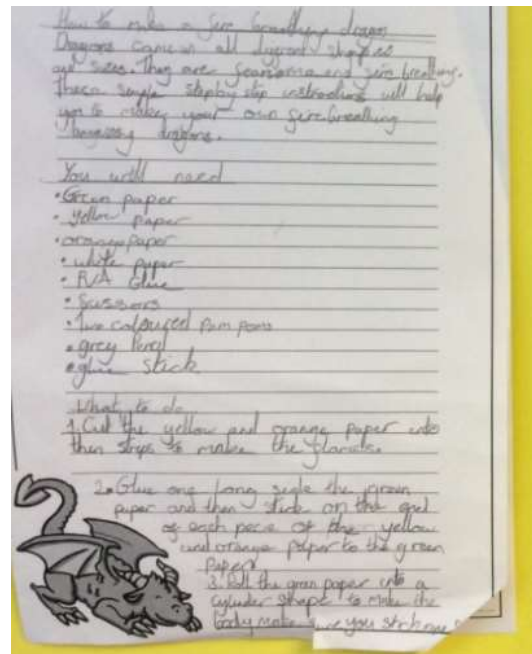 How to make a fire breathing dragon
Dragons come in all
sizes. They are fearsome and fire breathing.
These simple step by step instructions will help
you to make your own fire breathing
dragons.
You will need
•Green paper
•yellow paper
•orange paper
•white paper
•Glue
•Scissors
•Two coloured Pom poms
•grey Pencil
•glue stick
What to do
1. Cut the yellow and orange paper into
then strips to make the
2. Glue one long side the green
paper and then stick on the end
of each pece of the yellow
and orange paper to the green
Paper
3. Roll the green paper into a
cylinder shape to make the
body make sure you stick